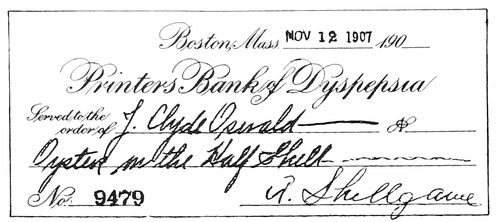 Boston, Mass NOV 12 1907 190
Printers Bank of Dyspepsia
Served to the
order of J. Clyde Oswald $
Oysters on the Half Shell
No. 9479 A. Shellgame